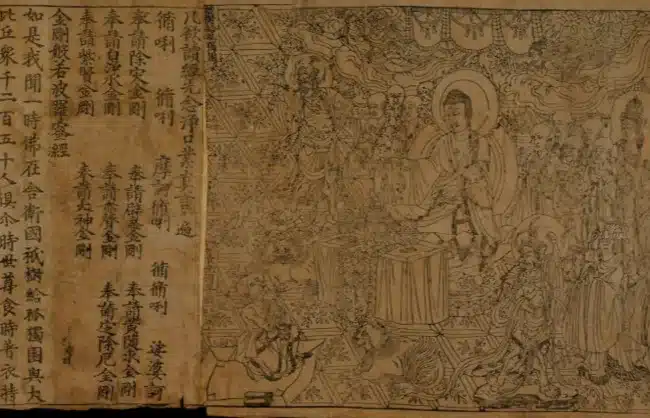 凡欲讀經先念淨口業真言一遍
脩唎　脩唎　摩訶脩唎　脩脩唎　娑婆訶
奉請除灾金剛　奉請辟毒金剛　奉請黃隨求金剛
奉請白淨水金剛　奉請赤聲金剛　奉請定除厄金剛
奉請紫賢金剛　奉請大神金剛
金剛般若波羅蜜經
如是我聞一時佛在舍衛國祇樹給孤獨園與大
比丘眾千二百五十人俱尒時世尊食時著衣持